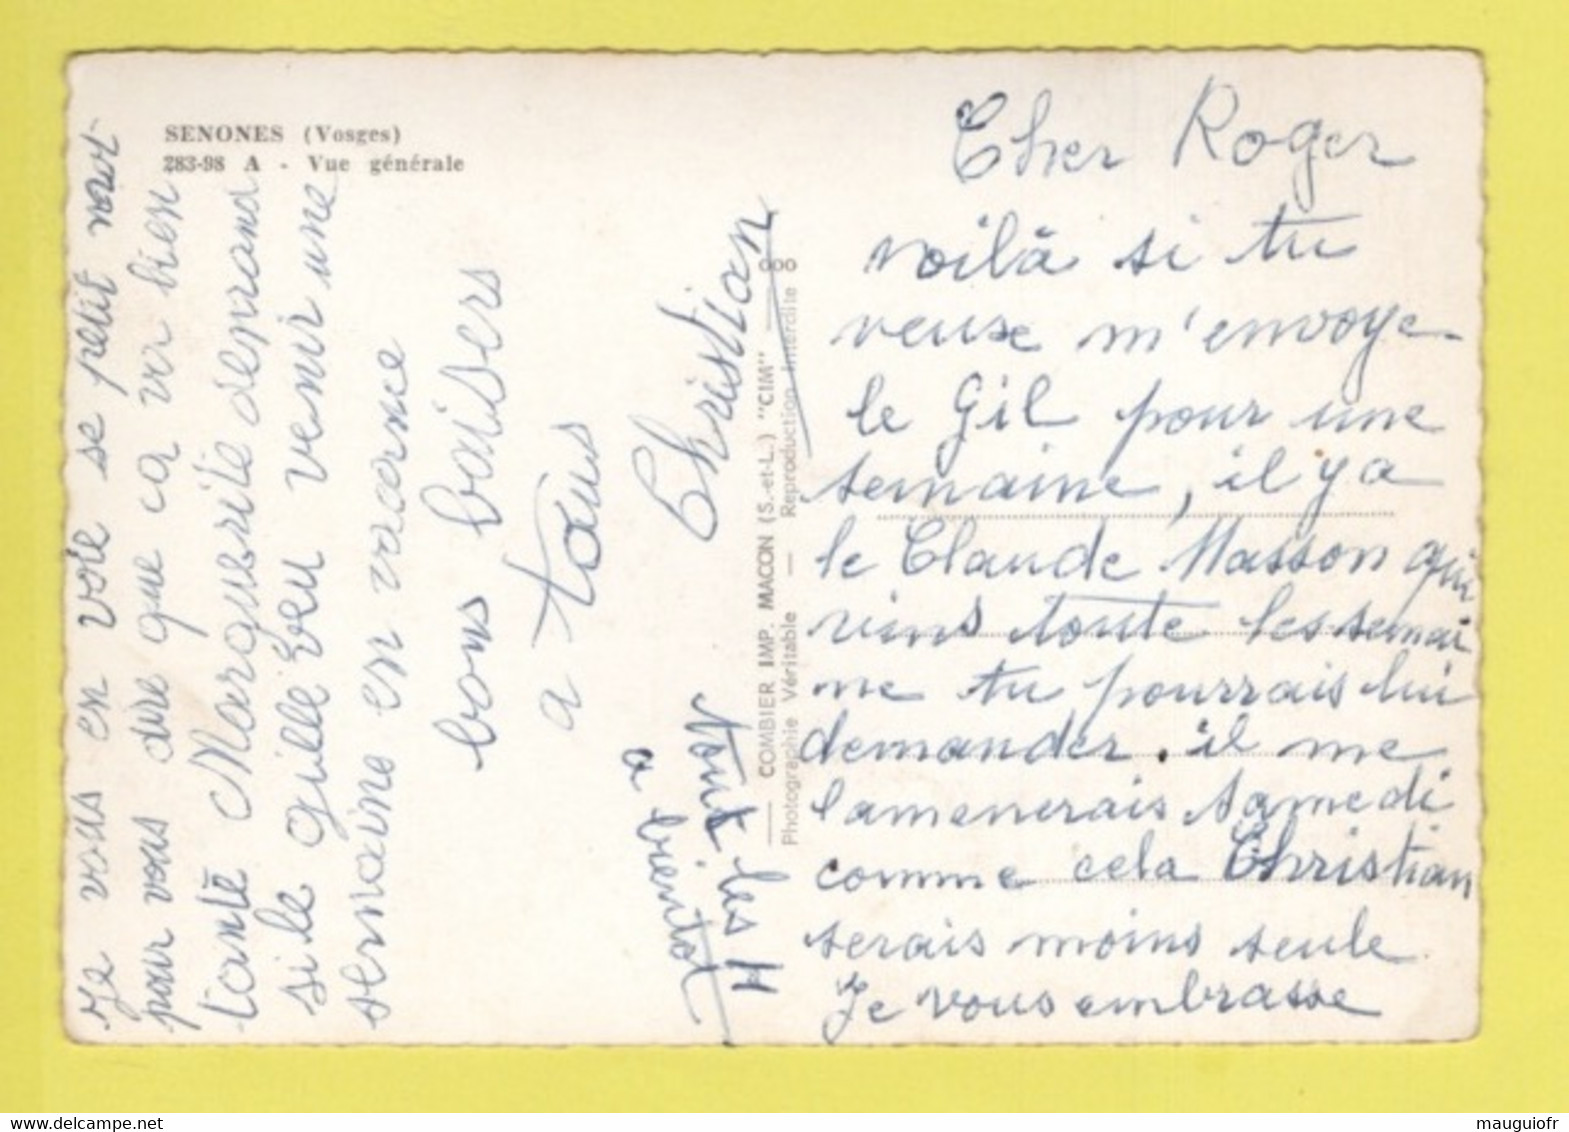 SENONES (Vosges)
283-98 A - Vue générale
Je vous en voie se petit mot
pour vous dire que ca va bien
tante Marguerite deprand
si le guille veu venir une
semaine en vacance
bons baisers
a tous
Christian
a bientot
tout les 4
COMBIER IMP. MACON (S.-et-L.) "CIM"
Photographie Véritable — Reproduction Interdite
Cher Roger
voilà si tu
veuse m'envoye
le Gil pour une
semaine, il y a
le Claude Masson qui
viens toute les semai
ne tu pourrais lui
demander. il me
lamenerais samedi
comme cela Christian
serais moins seule
Je vous embrasse
mauguiofr